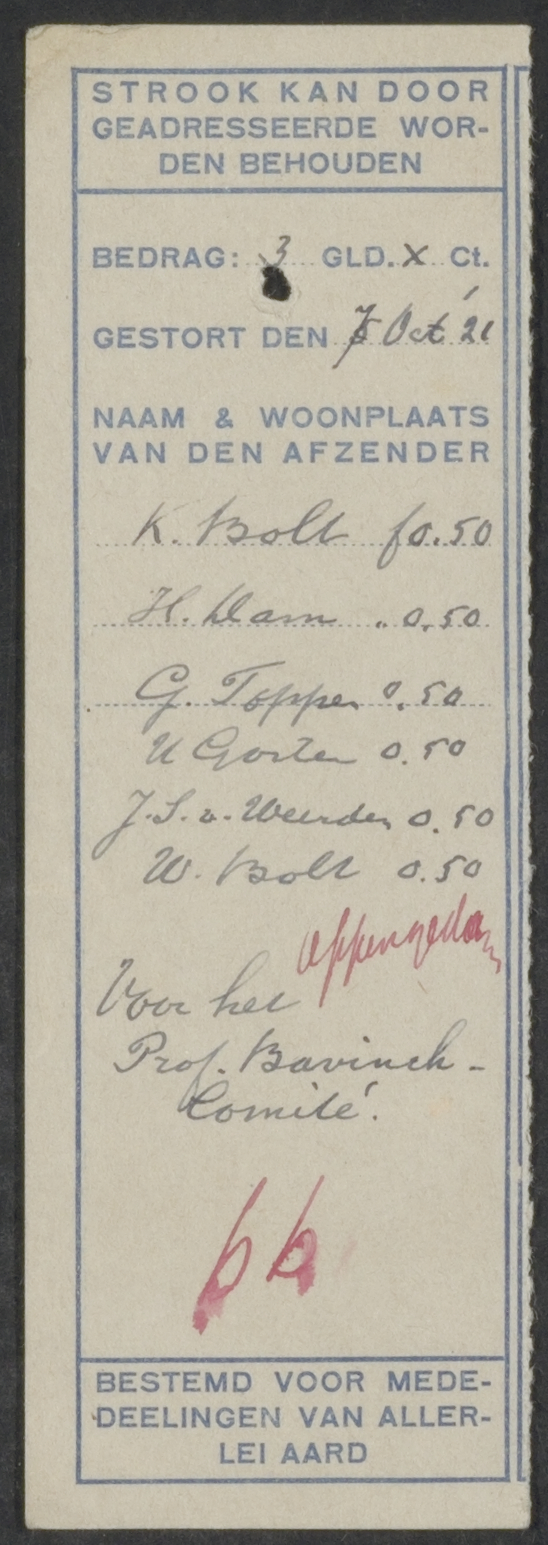 STROOK KAN DOOR
GEADRESSEERDE WOR-
DEN BEHOUDEN
BEDRAG: 3 GLD. X Ct.
GESTORT DEN Oct '21
NAAM & WOONPLAATS
VAN DEN AFZENDER
K. Bolt f0.50
H. Dam " 0.50
G. Topper 0.50
U Gorter 0.50
J.S. v. Weerden 0.50
W. Bolt 0.50
appingedam
Voor het
Prof. Bavinck-
Comité.
66
BESTEMD VOOR MEDE-
DEELINGEN VAN ALLER-
LEI AARD